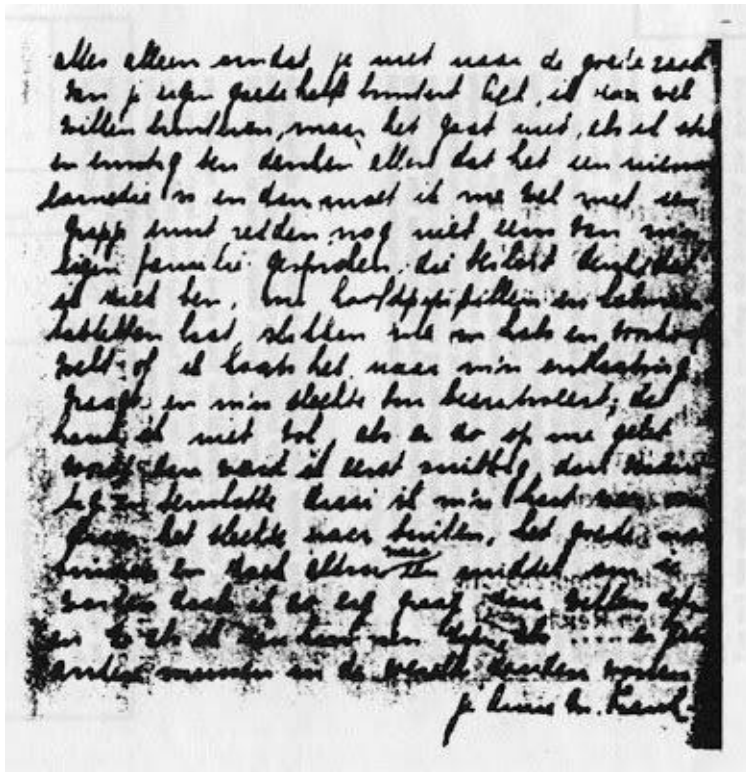 alles alleen omdat je niet naar de goede raad
van je eigen goede helft luistert. Ach, ik zou wel
willen luisteren, maar het gaat niet, als ik stil
en ernstig ben denken allen dat het een nieuwe
comedie is en dan moet ik me wel met een
grapje eruit redden, nog niet eens van m'n
eigen familie gesproken, die beslist denkt dat
ik ziek ben, me hoofdpijnpillen en
tabletten laat slikken me in hals en voorhoofd
voelt of ik koorts heb, naar m'n ontlasting
vraagt en m'n slechte bui becritiseert, dat
houd ik niet vol, als er zo op me gelet
wordt dan word ik eerst snibbig, dan verdrietig
en tenslotte draai ik m'n hart weer om
draai het slechte naar buiten, het goede naar
binnen en zoek aldoor naar een middel om te
worden zoals ik zo erg graag zou willen
en zoals ik zou kunnen zijn, als .... er geen
andere mensen in de wereld zouden wonen.
je Anne M. Frank.